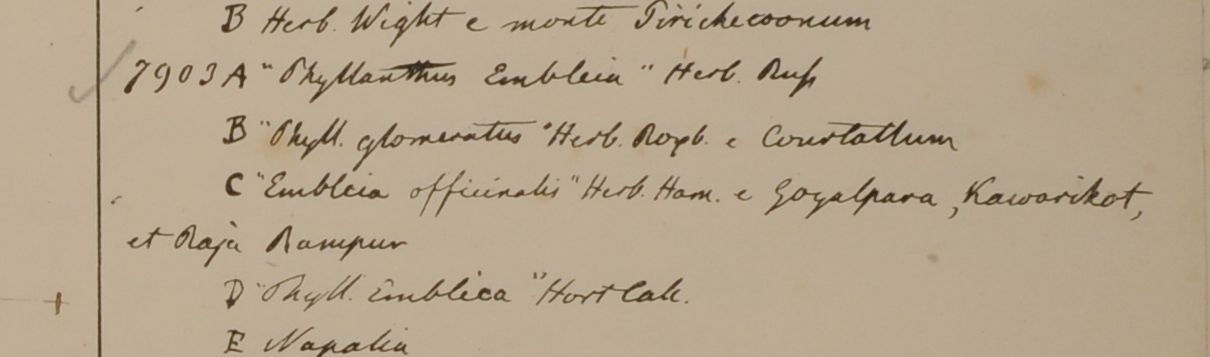 B Herb. Wight e monte Tirichecoonum
7903 A "Phyllanthus Embleia" Herb. Russ
B "Phyll. glomeratus" Herb. Roxb. e Courtallum
C "Embleia officinalis" Herb. Ham. e Goyalpara, Kawarikot,
et Raja Rampur
D "Phyll. Emblica" Hort Calc.
E Napalia